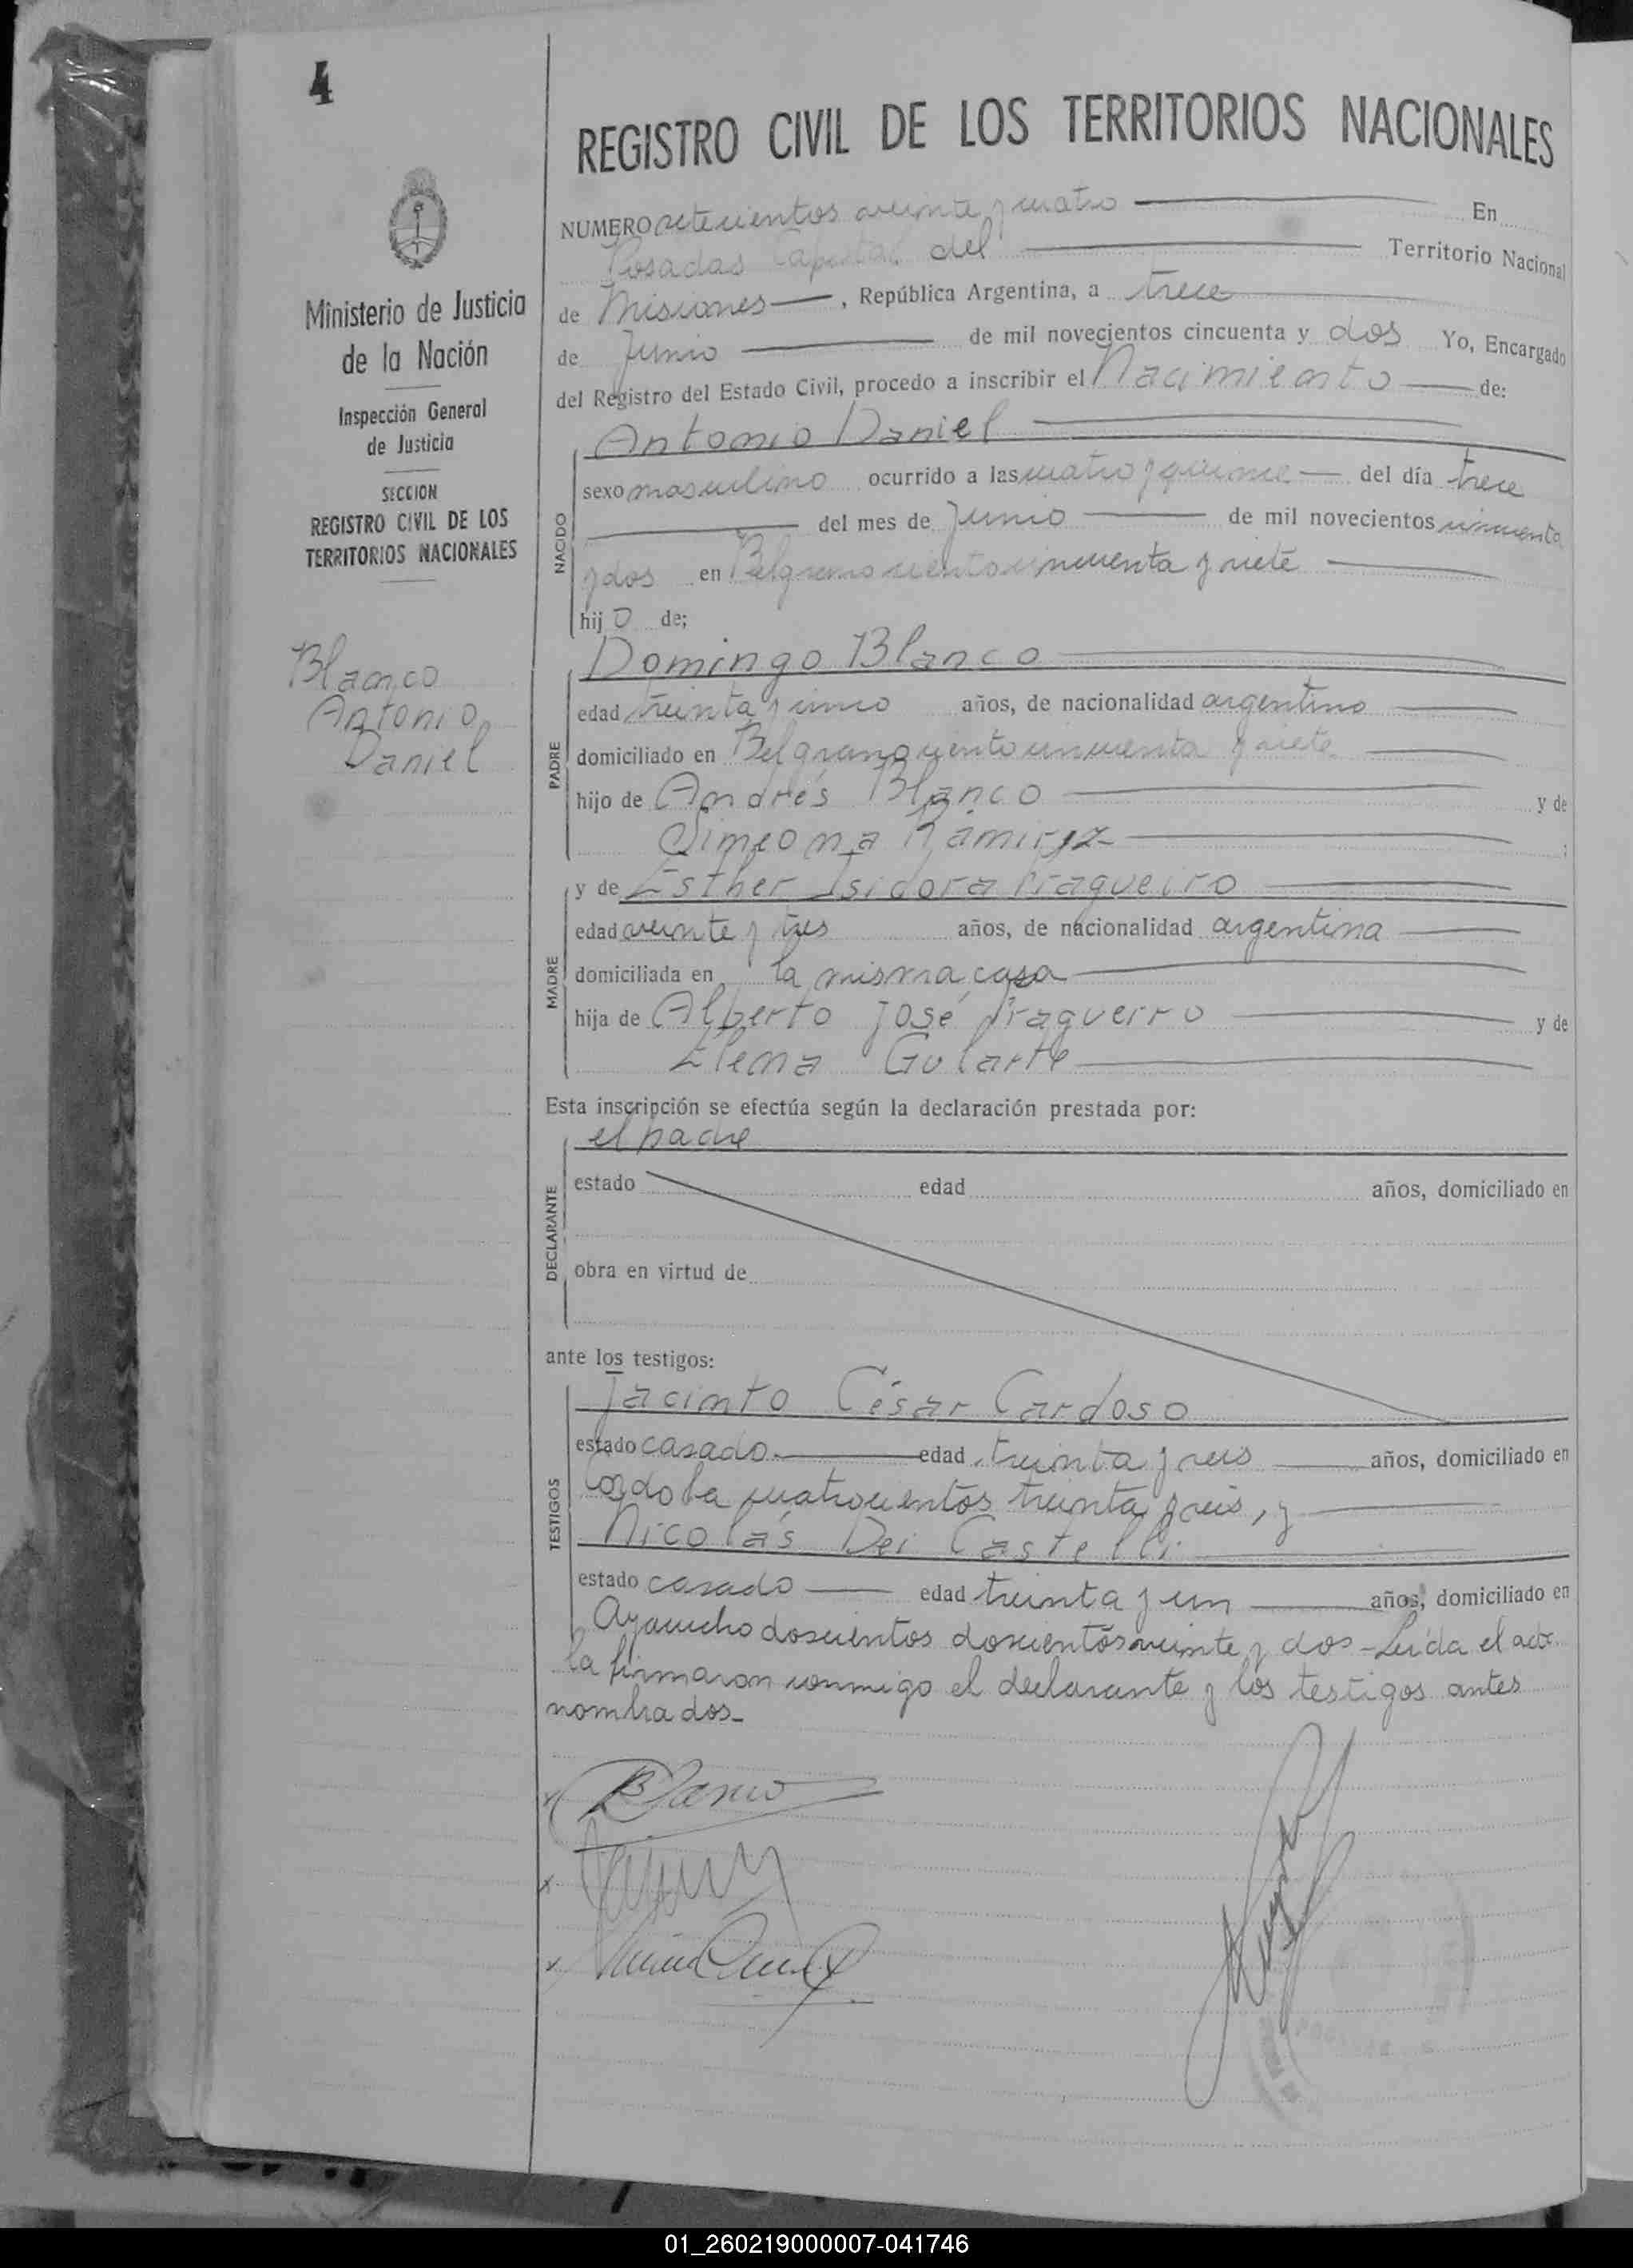 4
REGISTRO CIVIL DE LOS TERRITORIOS NACIONALES
NUMERO setecientos veinte y cuatro En
Posadas Capital del Territorio Nacional
de Misiones, República Argentina, a trece
de Junio de mil novecientos cincuenta y dos Yo, Encargado
del Registro del Estado Civil, procedo a inscribir el Nacimiento de:
Antonio Daniel
sexo masculino ocurrido a las cuatro y quince del día trece
del mes de Junio de mil novecientos cincuenta
y dos en Belgrano ciento cincuenta y siete
hijo de;
NACIDO
Domingo Blanco
edad treinta y cinco años, de nacionalidad argentino
domiciliado en Belgrano ciento cincuenta y siete
hijo de Andrés Blanco y de
Simeona Ramirez ;
PADRE
y de Esther Isidora Fragueiro
edad veinte y tres años, de nacionalidad argentina
domiciliada en la misma casa
hija de Alberto José Fragueiro y de
Elena Gularte
MADRE
Esta inscripción se efectúa según la declaración prestada por:
el padre
estado edad años, domiciliado en
obra en virtud de
DECLARANTE
ante los testigos:
Jacinto César Cardoso
estado casado edad treinta y seis años, domiciliado en
Cordoba cuatrocientos treinta y seis, y
Nicolás Dei Castelli
estado casado edad treinta y un años, domiciliado en
Ayacucho doscientos doscientos veinte y dos - Leída el acta
la firmaron conmigo el declarante y los testigos antes
nombrados -
TESTIGOS
Blanco
Ministerio de Justicia
de la Nación
Inspección General
de Justicia
SECCION
REGISTRO CIVIL DE LOS
TERRITORIOS NACIONALES
Blanco
Antonio
Daniel
01_260219000007-041746